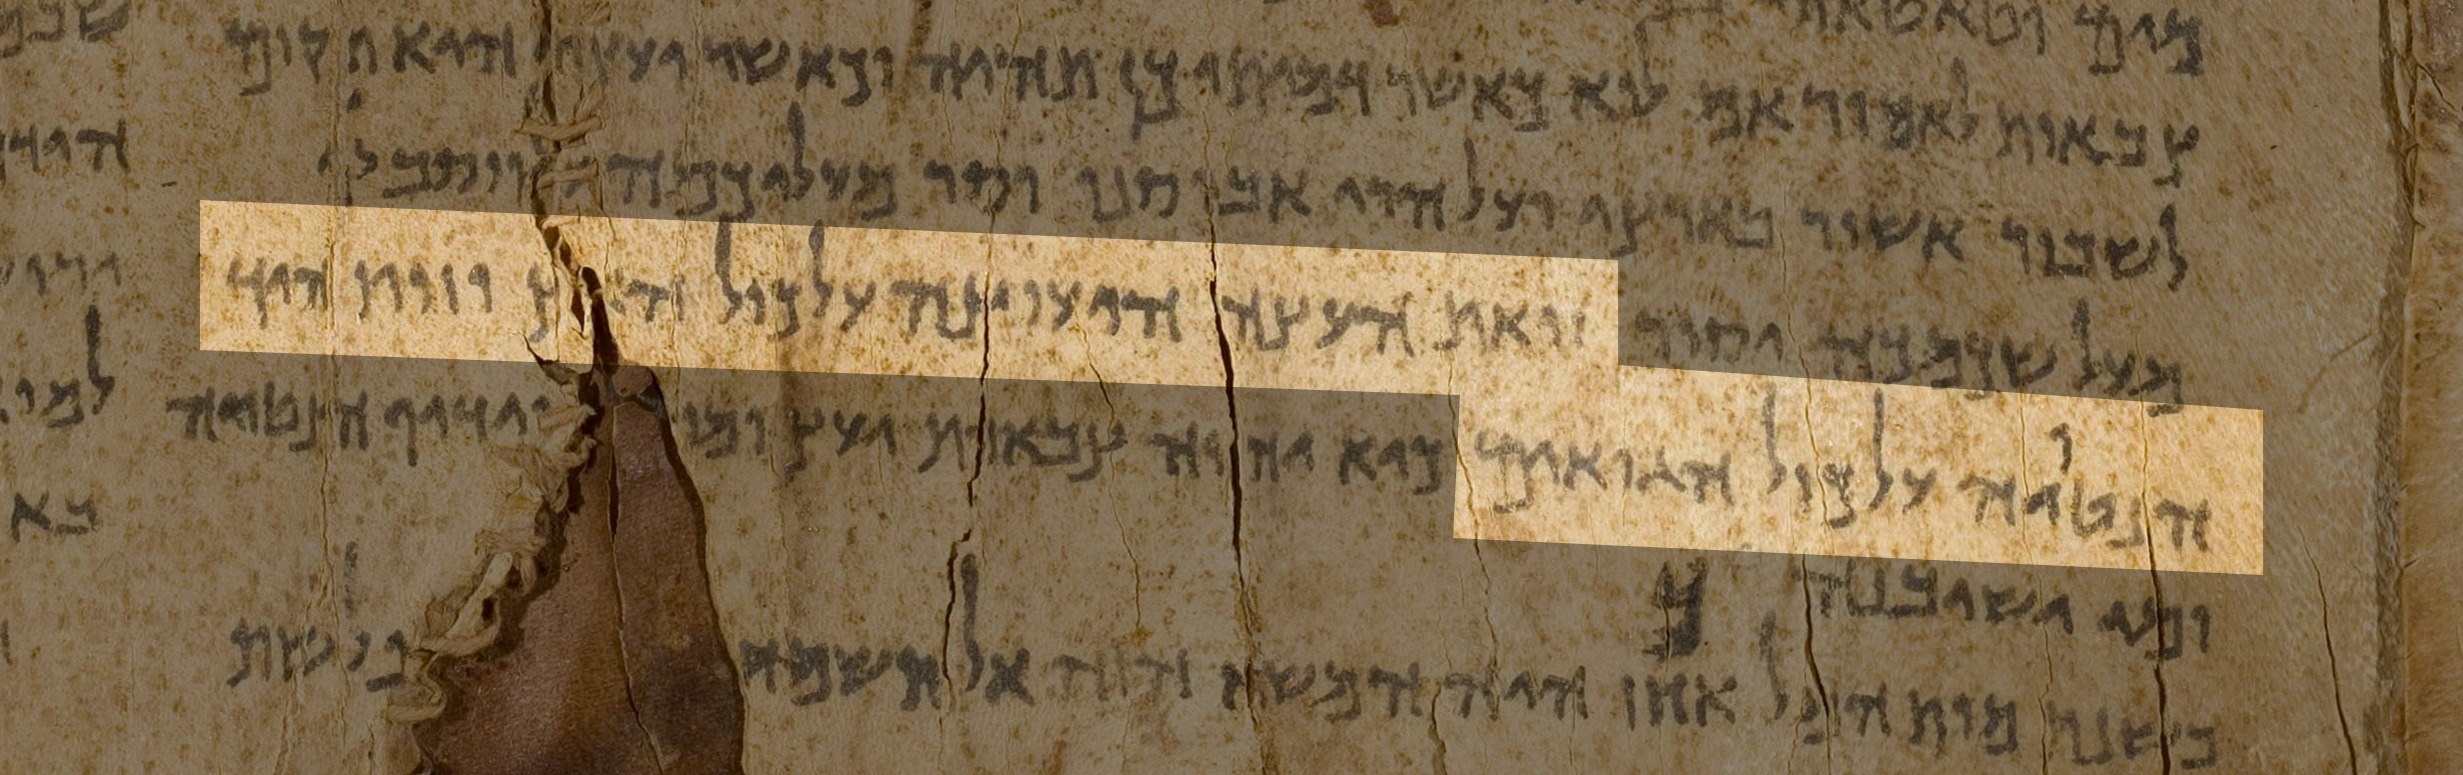 מים וטאטאתי
צבאות לאמור אם לוא כאשר דמיתי כן תהיה וכאשר יעצתי והיא תקום
לשבור אשור בארצי ועל הרי אבוסנו וסר מעליכמה
מעל שכמכה יסור זואת העצה היעוצה על כול הארץ וזות היד
הנטויה על כול הגואים כיא יהוה צבאות יעץ ומי הנטויה
ומי ישיבנה
בשנת מות המלך אחז היה המשא הזה אל תשמחי פלשת